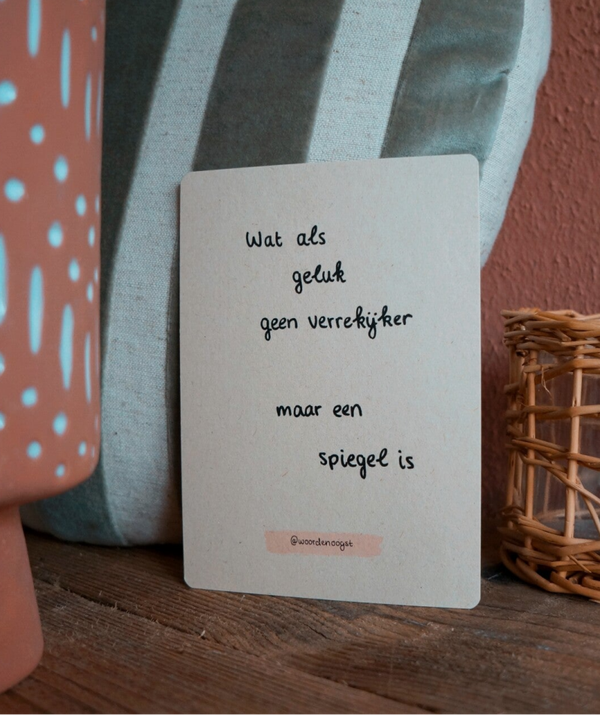 Wat als
geluk
geen verrekijker
maar een
spiegel is
@woordenoogst